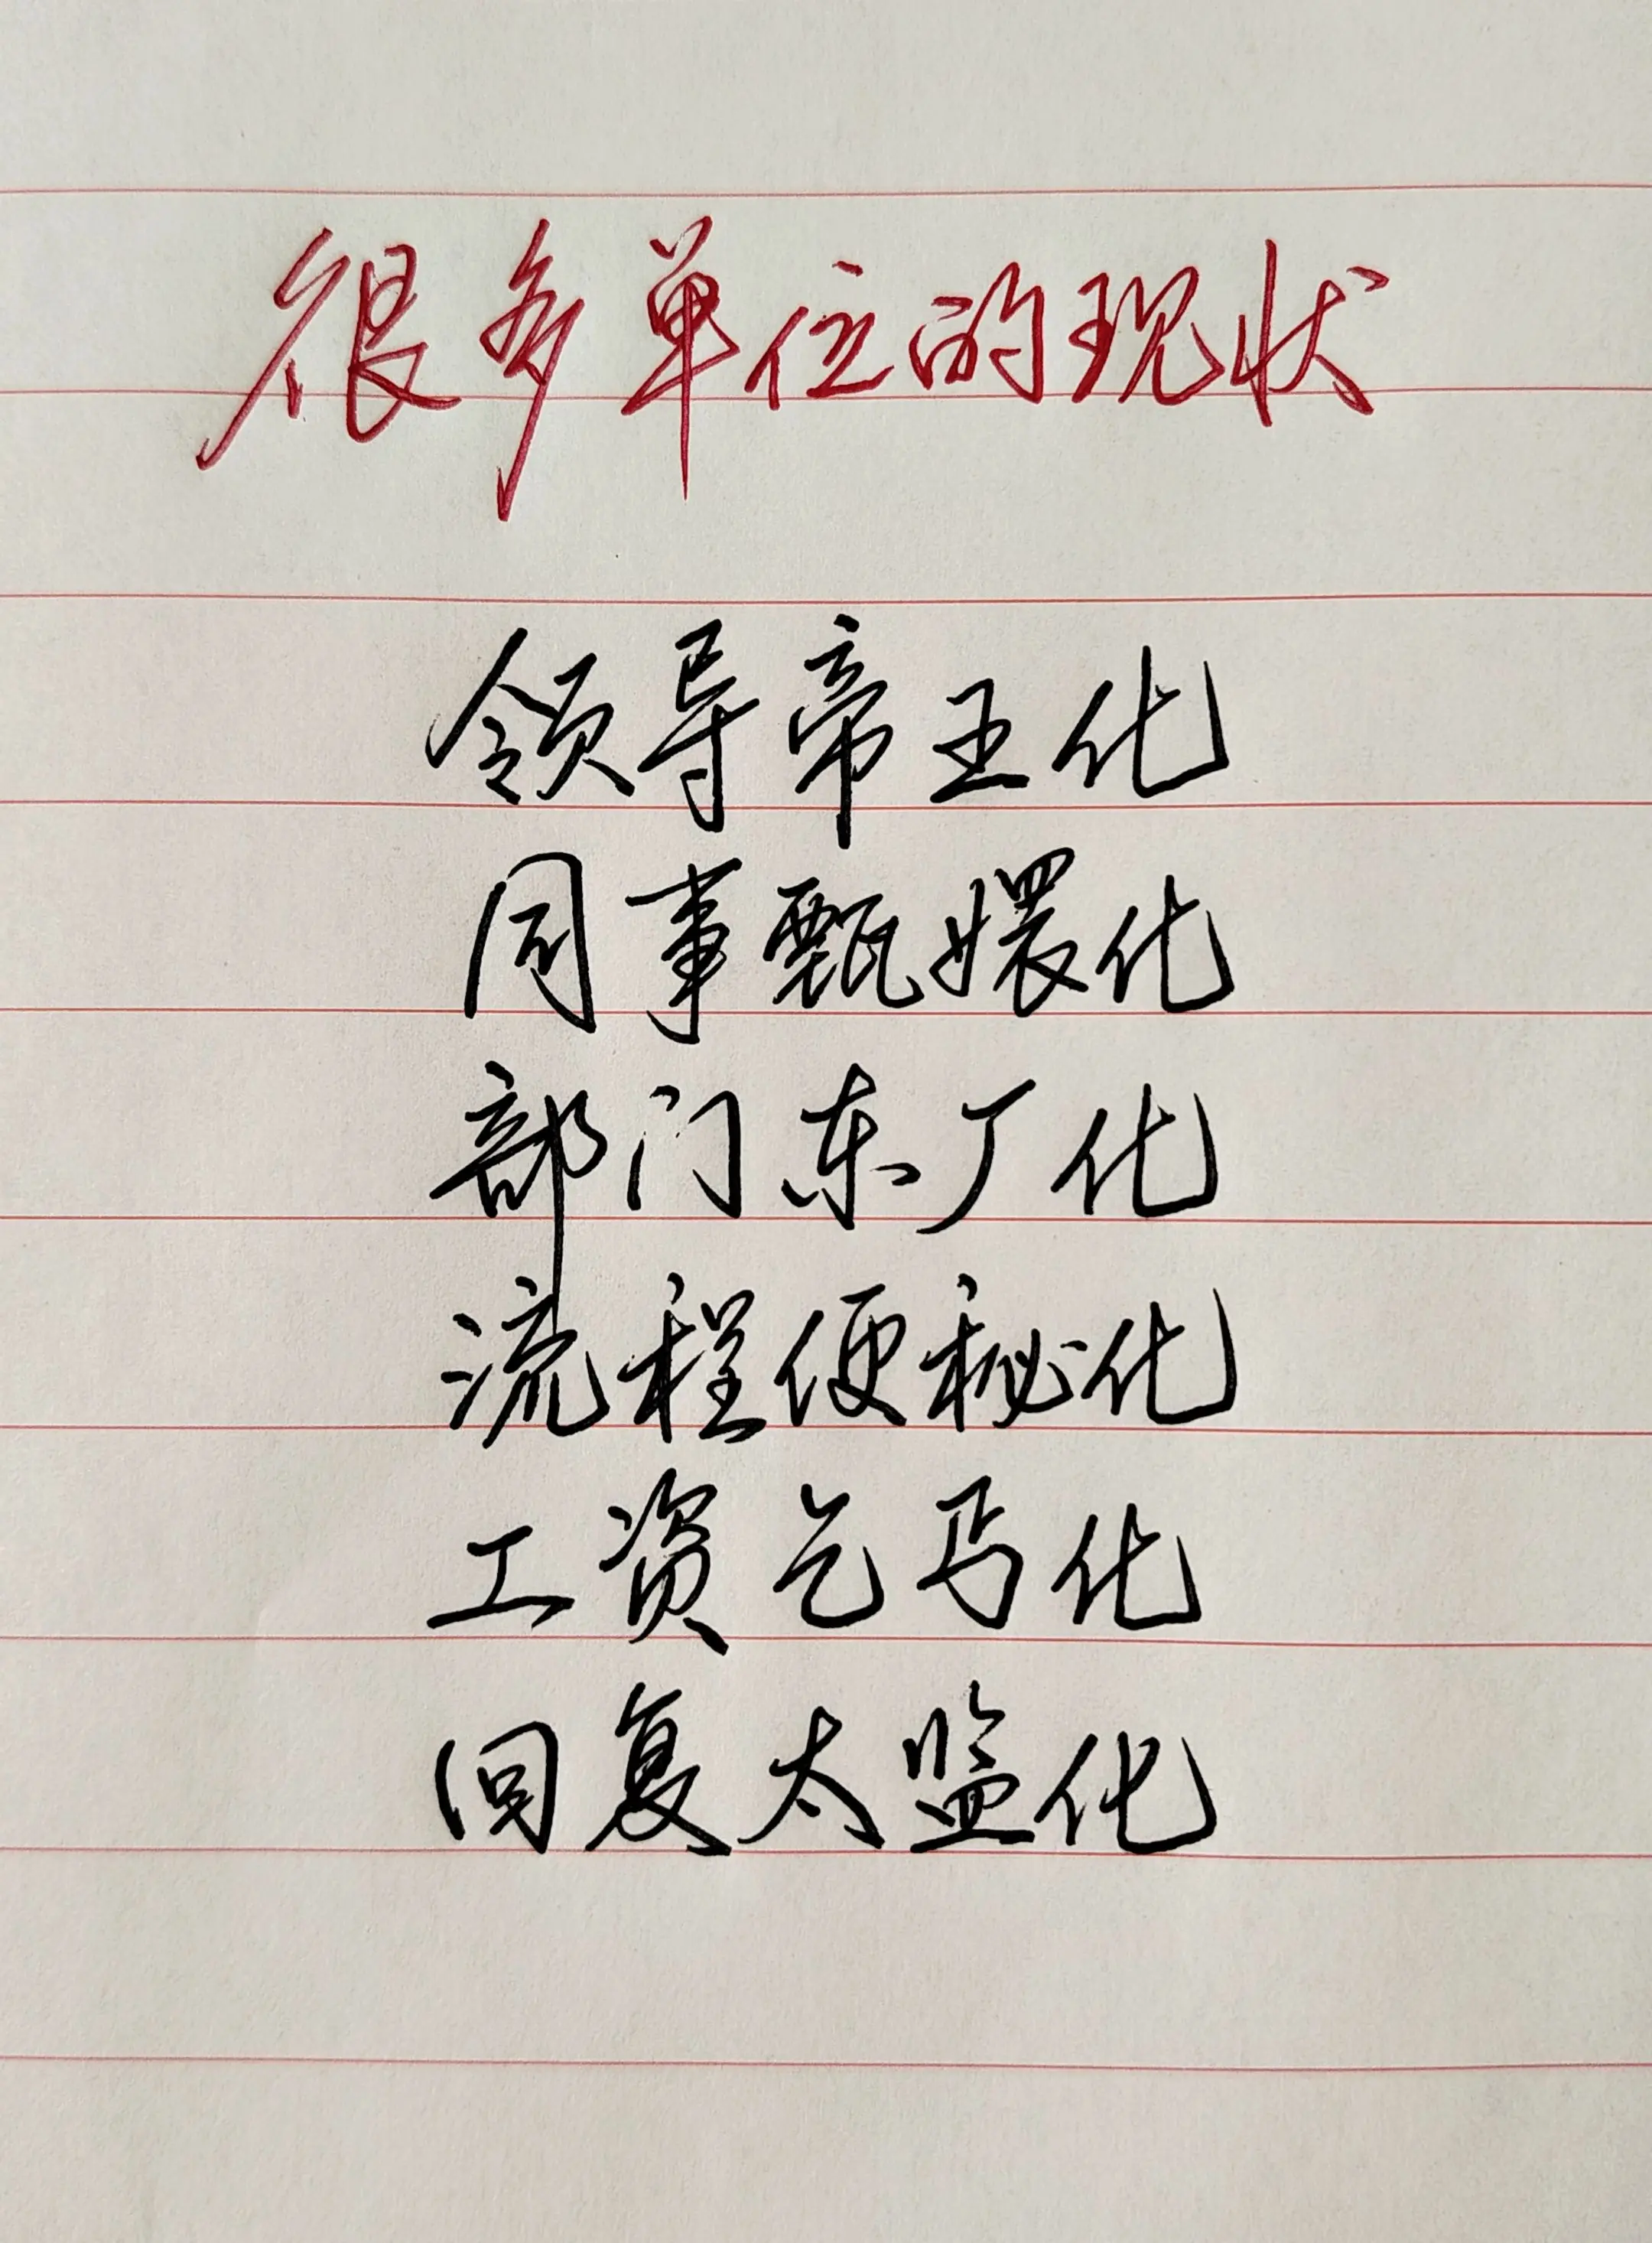 很多单位的现状
领导帝王化
同事甄嬛化
部门东厂化
流程便秘化
工资乞丐化
回复太监化